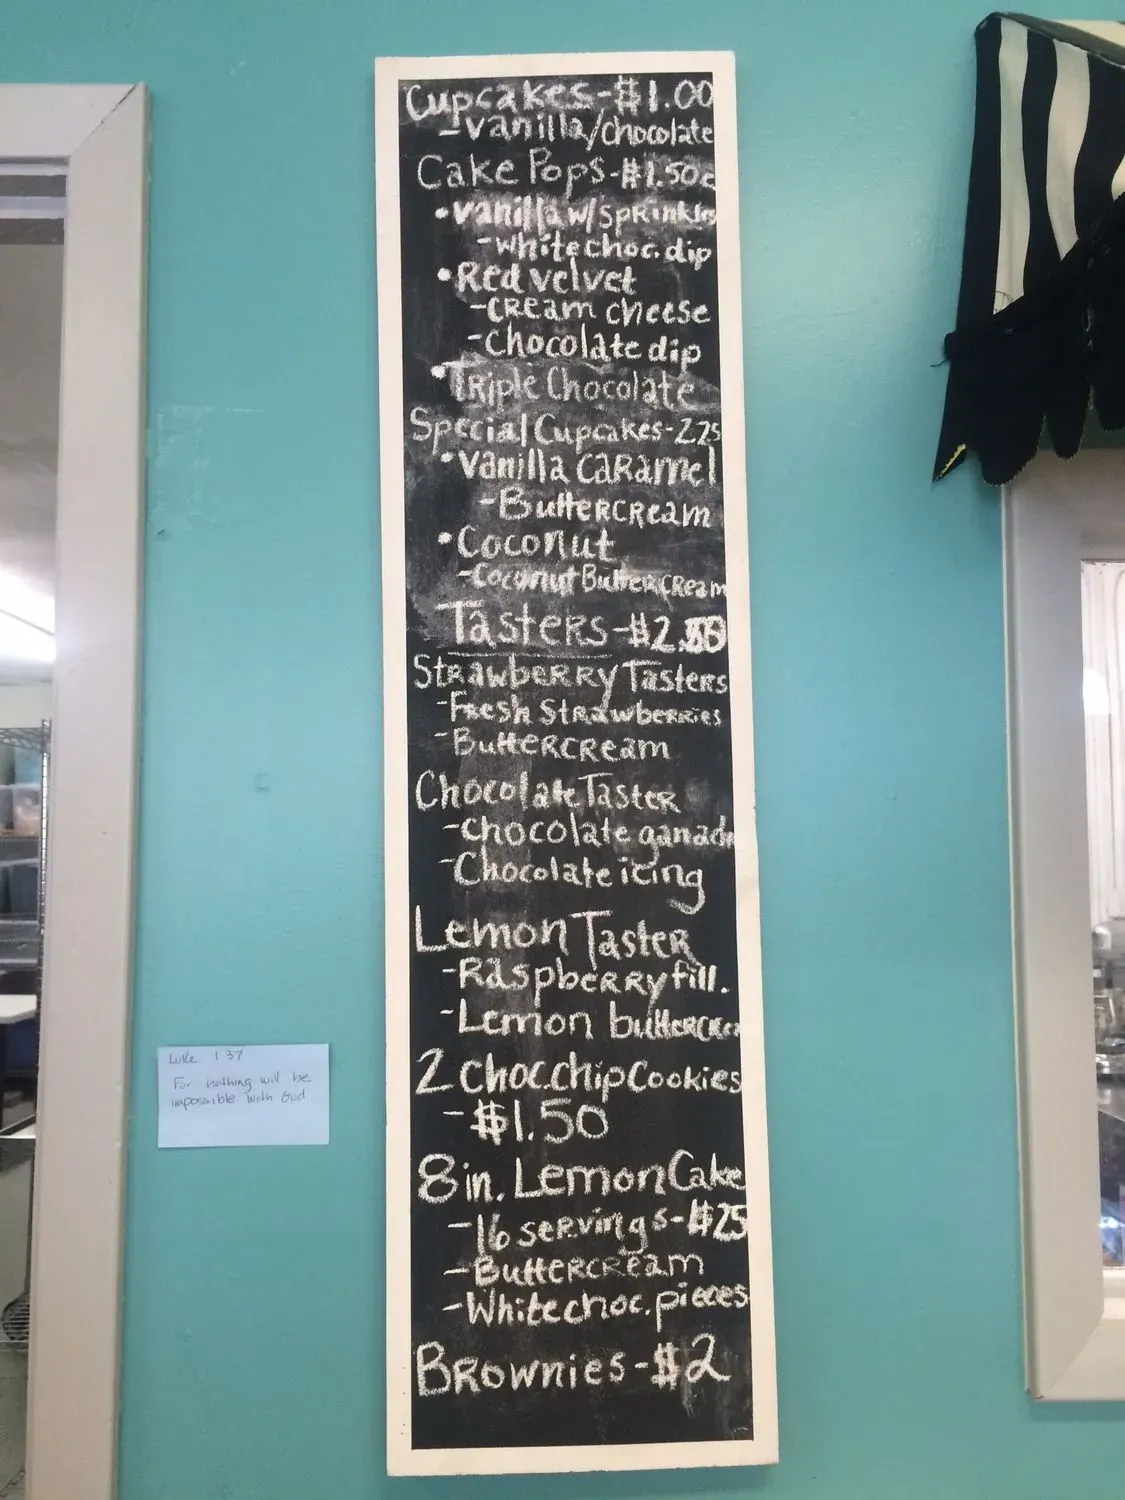 Cupcakes-$1.00
-vanilla/chocolate
Cake Pops-$1.50c
•vanilla w/sprinkles
-white choc. dip
•Red velvet
-cream cheese
-chocolate dip
•Triple Chocolate
Special Cupcakes-2.25
•Vanilla Caramel
-Buttercream
•Coconut
-Coconut Buttercream
Tasters-$2.
Strawberry Tasters
-Fresh Strawberries
-Buttercream
Chocolate Taster
-chocolate ganach
-Chocolate icing
Lemon Taster
-Raspberry fill.
-Lemon buttercrea
2 choc.chip Cookies
-$1.50
8 in. Lemon Cake
-16 servings-$25
-Buttercream
-White choc. pieces
Brownies-$2
Luke 1:37
For nothing will be
impossible with God